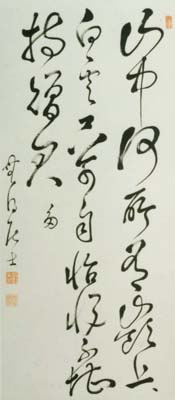 山中何所有嶺上
白雲只可自怡悅不堪
持贈君 多
居士